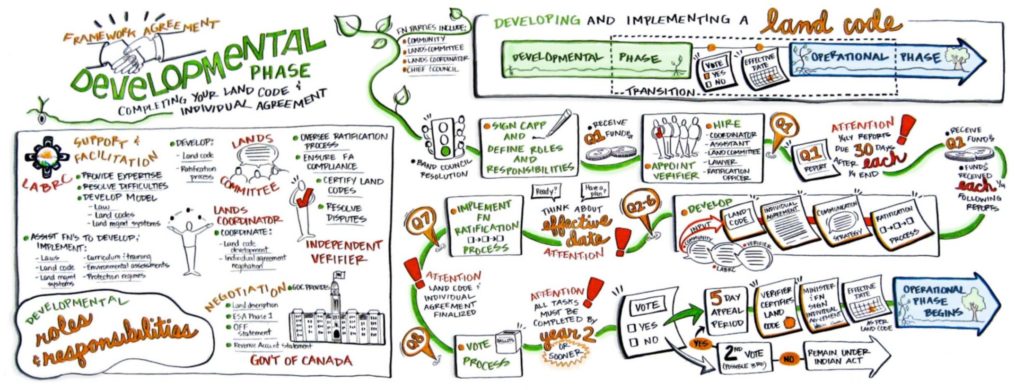 FRAMEWORK AGREEMENT
DEVELOPMENTAL
PHASE
COMPLETING YOUR LAND CODE &
INDIVIDUAL AGREEMENT
FN PARTIES INCLUDE:
COMMUNITY
LANDS COMMITTEE
LANDS COORDINATOR
CHIEF & COUNCIL
DEVELOPING AND IMPLEMENTING A
land code
DEVELOPMENTAL PHASE
VOTE
YES
NO
EFFECTIVE
DATE
OPERATIONAL PHASE
TRANSITION
LABRC
SUPPORT &
FACILITATION
PROVIDE EXPERTISE
RESOLVE DIFFICULTIES
DEVELOP MODEL
- Law
- Land codes
- Land mgmt systems
ASSIST FN'S TO DEVELOP &
IMPLEMENT:
- Laws
- Land code
- Land mgmt
systems
- Curriculum & training
- Environmental assessments
- Protection regimes
DEVELOP:
- Land code
- Ratification
process
LANDS
COMMITTEE
LANDS
COORDINATOR
COORDINATE:
- Land code
development
- Individual agreement
negotiation
OVERSEE RATIFICATION
PROCESS
ENSURE FA
COMPLIANCE
CERTIFY LAND
CODES
RESOLVE
DISPUTES
INDEPENDENT
VERIFIER
DEVELOPMENTAL
roles
& responsibilities
NEGOTIATION
GOC PROVIDES
Land description
ESA Phase 1
OFF
Statement
Revenue Account Statement
GOV'T OF CANADA
BAND COUNCIL
RESOLUTION
SIGN CAPP AND
DEFINE ROLES AND
RESPONSIBILITIES
RECEIVE
Q1
FUNDS
APPOINT
VERIFIER
HIRE
COORDINATOR
ASSISTANT
LAND COMMITTEE
LAWYER
RATIFICATION OFFICER
Q1
REPORT
ATTENTION
¼LY REPORTS
DUE 30 DAYS
AFTER each
¼ END
RECEIVE
Q2
FUNDS
FUNDS
RECEIVED
each ¼
FOLLOWING
REPORTS
Q7
IMPLEMENT
FN
RATIFICATION
PROCESS
Ready?
Have a
plan
THINK ABOUT
effective
date
ATTENTION
Q2-6
DEVELOP
INPUT
COMMUNITY
LABRC
VERIFIER
LAND
CODE
INDIVIDUAL
AGREEMENT
COMMUNICATION
STRATEGY
RATIFICATION
PROCESS
ATTENTION
LAND CODE &
INDIVIDUAL
AGREEMENT
FINALIZED
Q8
VOTE
PROCESS
BALLOTS
ATTENTION
ALL TASKS
MUST BE
COMPLETED BY
year 2
OR
SOONER
VOTE
YES
NO
YES
5 DAY
APPEAL
PERIOD
VERIFIER
CERTIFIES
LAND
CODE
MINISTER
& FN SIGN
INDIVIDUAL
AGREEMENT
EFFECTIVE
DATE
AS PER
LAND CODE
OPERATIONAL
PHASE
BEGINS
2ND
VOTE
NO
REMAIN UNDER
INDIAN ACT